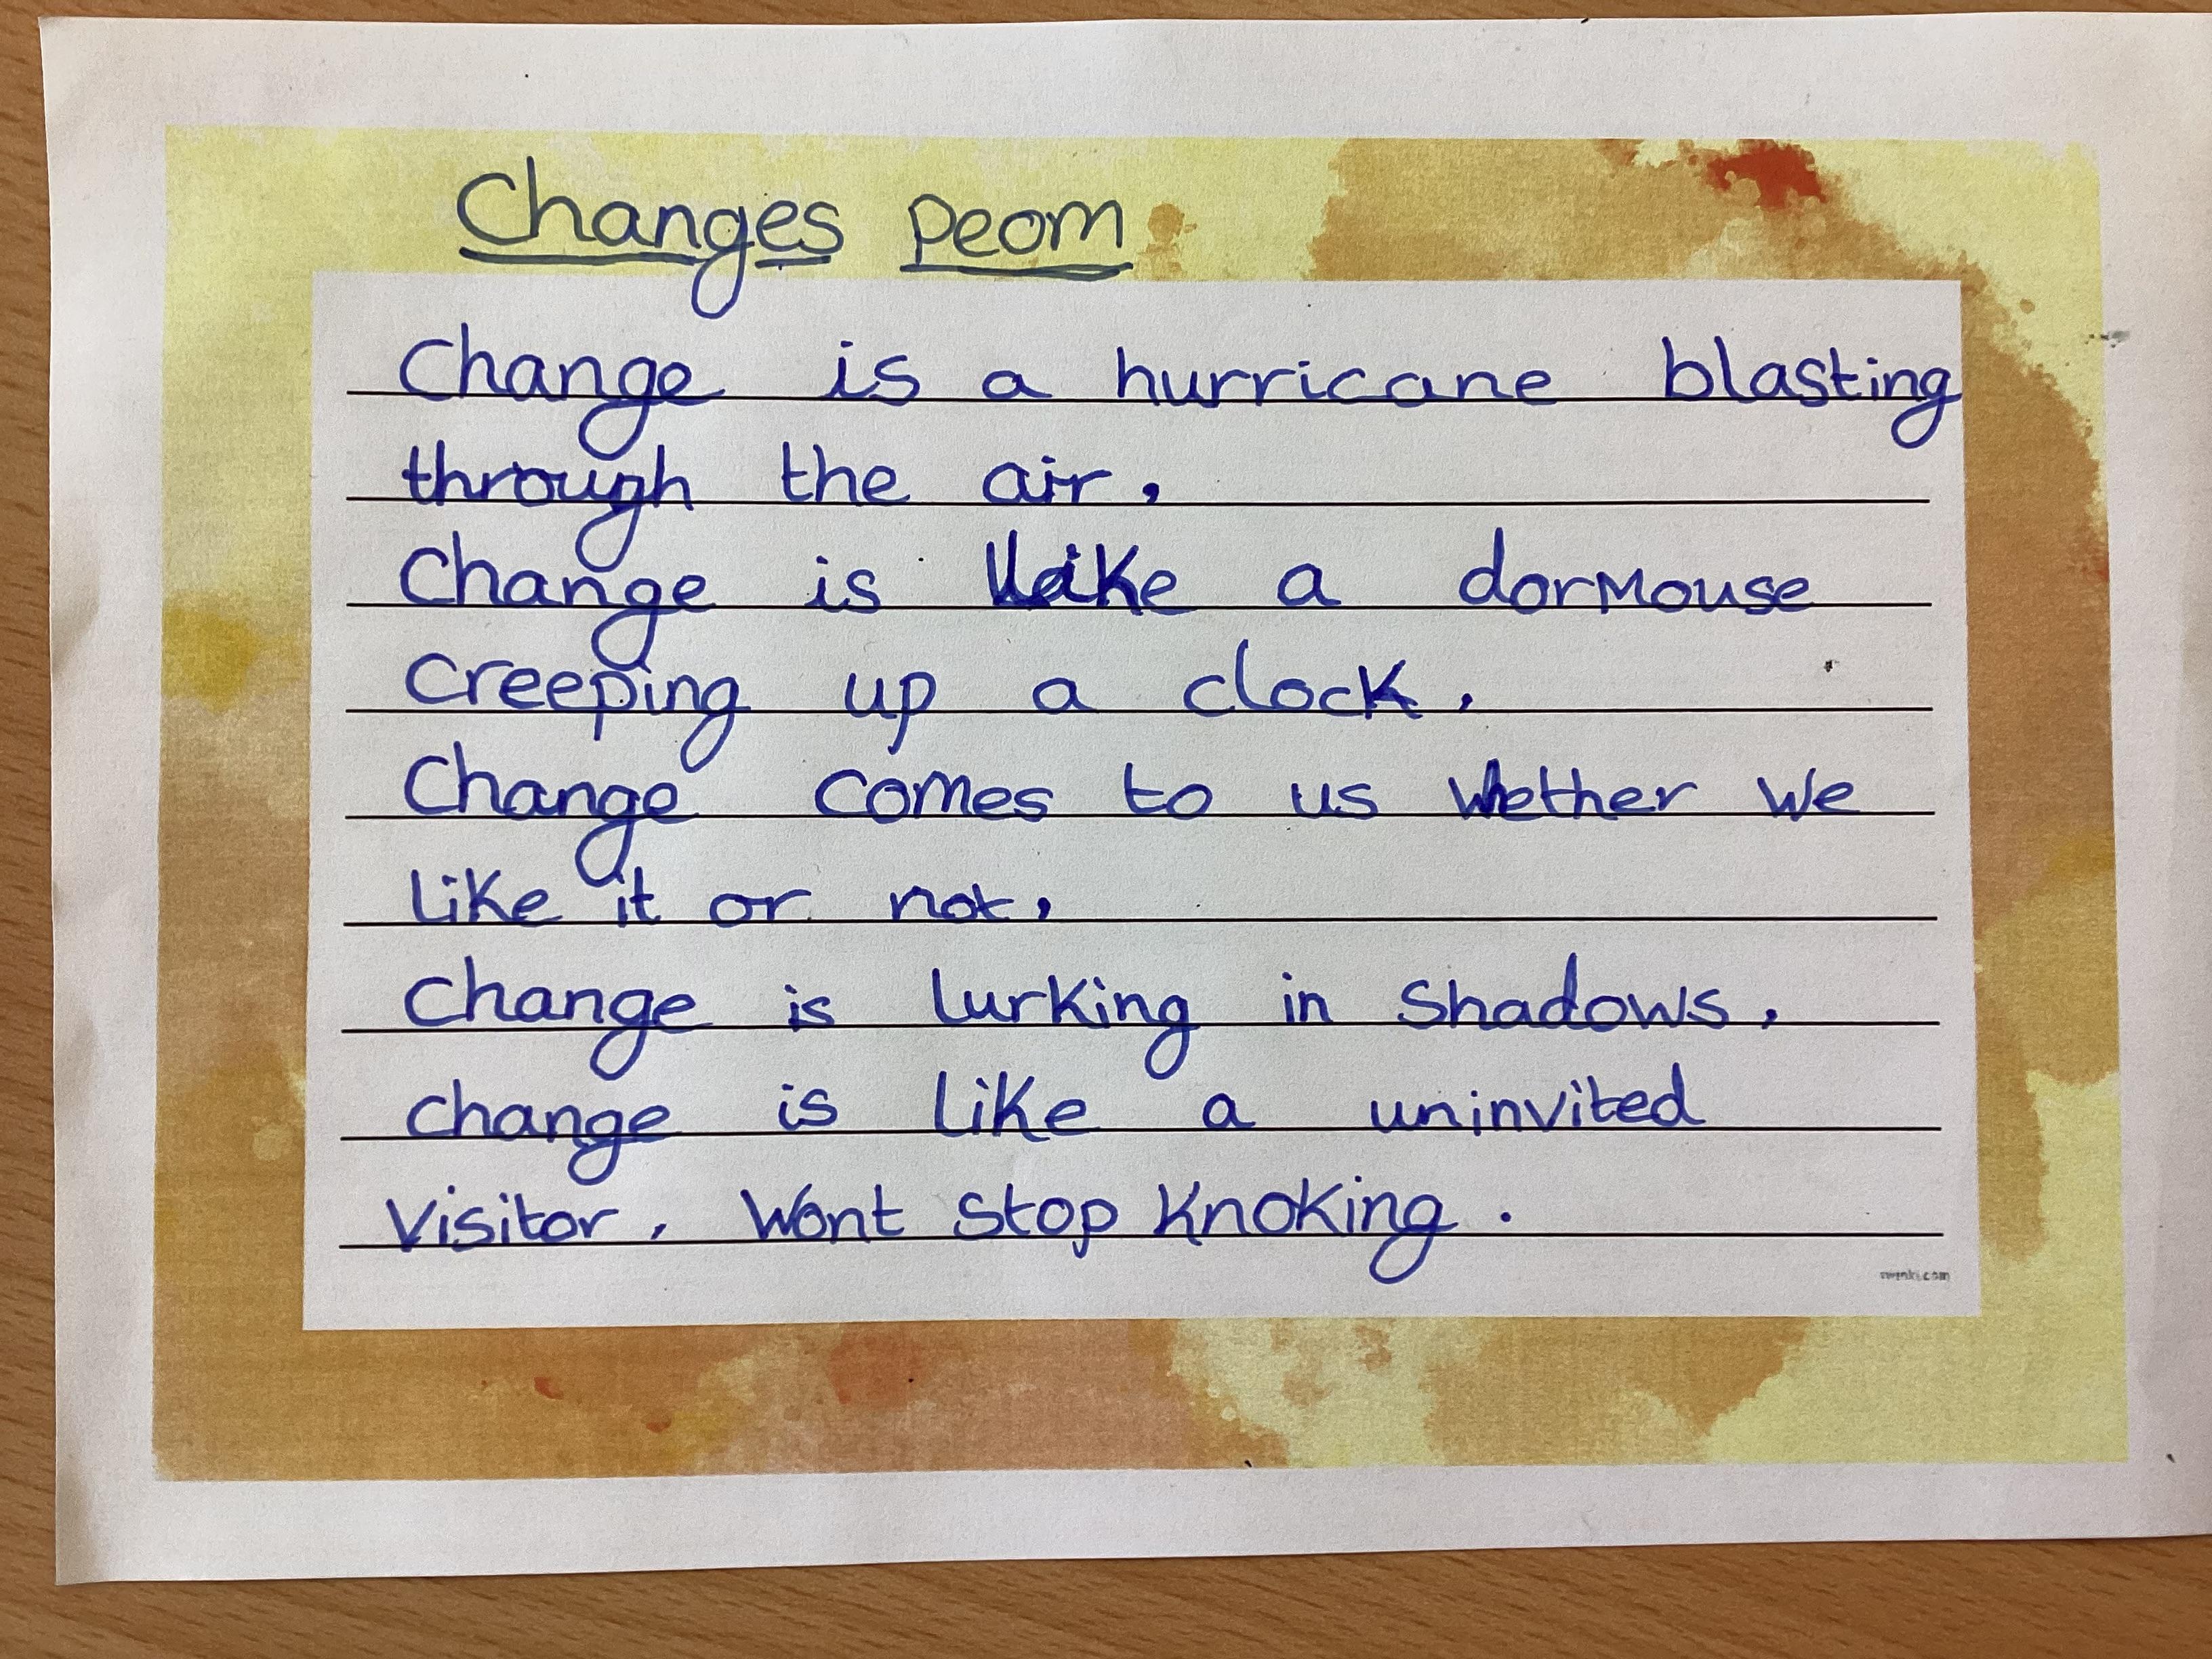 Changes peom
Change is a hurricane blasting
through the air,
Change is like a dormouse
creeping up a clock,
Change comes to us whether we
like it or not,
Change is lurking in shadows,
change is like a uninvited
visitor, wont stop knoking.